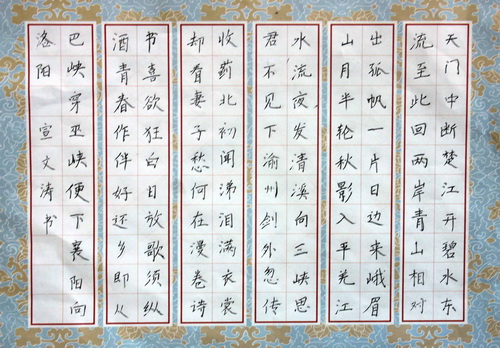 天门中断楚江开碧水东
流至此回两岸青山相对
出孤帆一片日边来峨眉
山月半轮秋影入平羌江
水流夜发清溪向三峡思
君不见下渝州剑外忽传
收蓟北初闻涕泪满衣裳
却看妻子愁何在漫卷诗
书喜欲狂白日放歌须纵
酒青春作伴好还乡即从
巴峡穿巫峡便下襄阳向
洛阳 宣文涛书